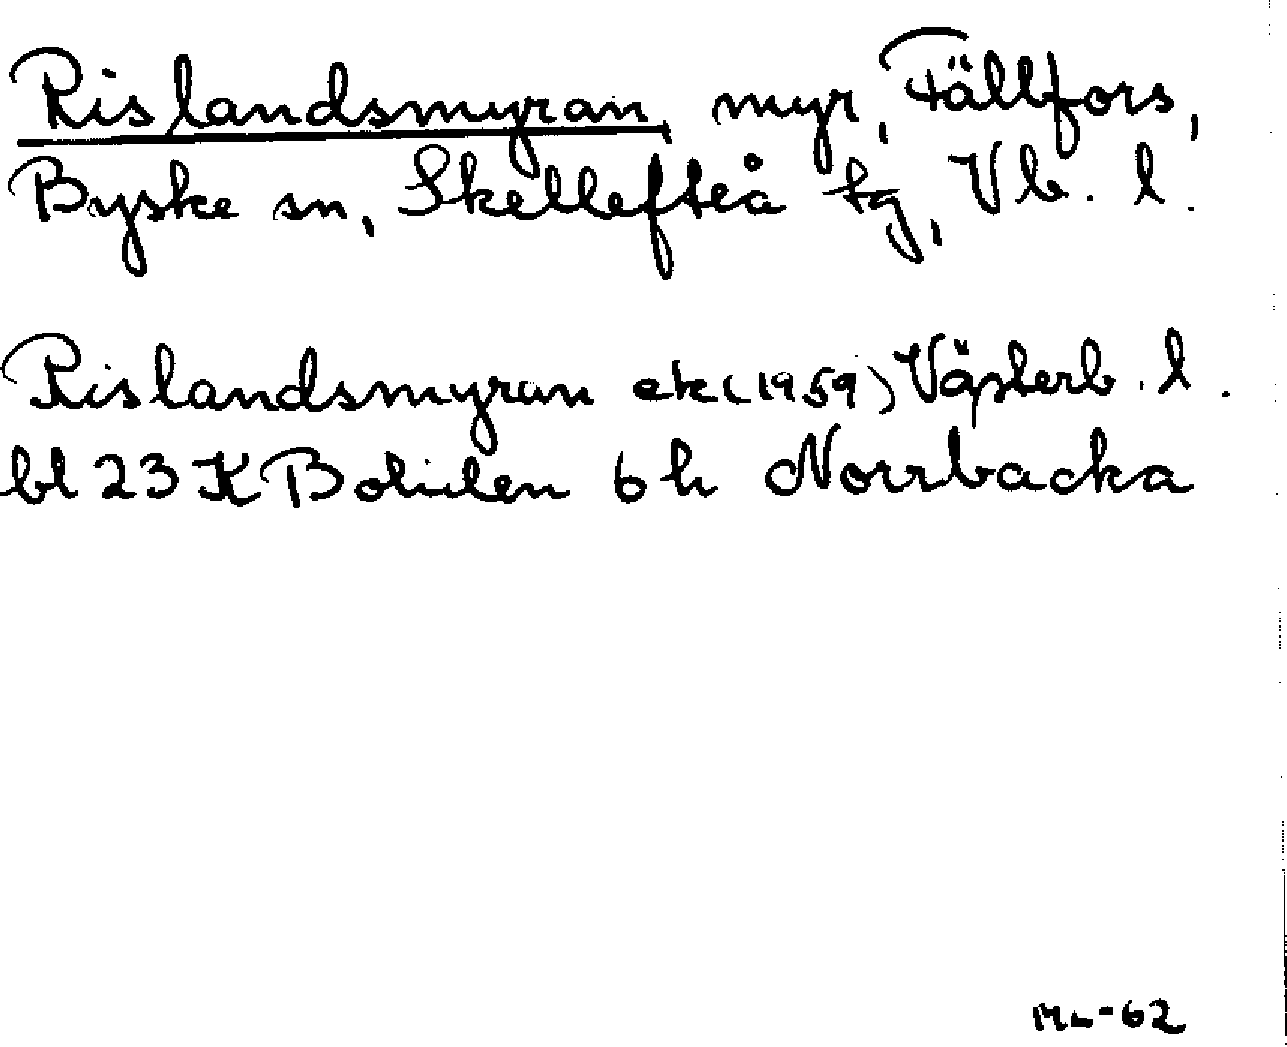 Rislandsmyran, myr, Fällfors,
Byske sn, Skellefteå tg, Vb. l.
Rislandsmyran ek (1959) Västerb. l.
bl 23 K Boliden 6 h Norrbacka
ML-62